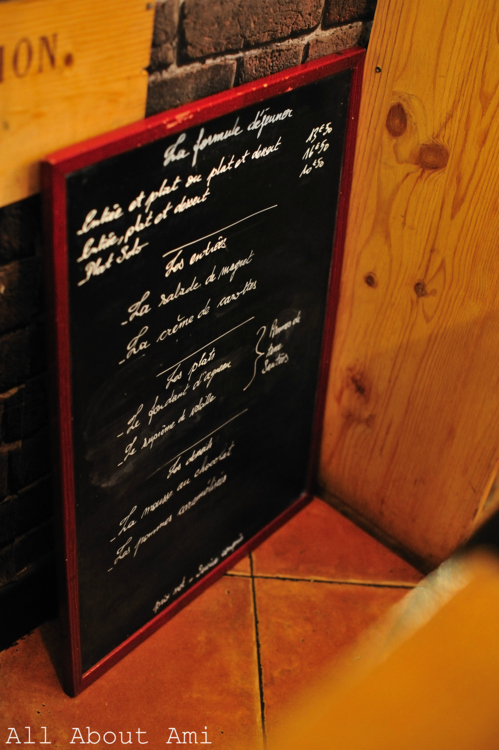 ION.
La formule déjeuner
Entrée et plat ou plat et dessert 13€50
Entrée, plat et dessert 16€50
Plat Seul 10€50
Les entrées
-La salade de magret
-La crème de carottes
Les plats
-Le fondant d'agneau
-Le suprême de volaille
Pommes de
Les desserts
-La mousse au chocolat
-Les pommes caramélisées
prix net - Service compris
All About Ami